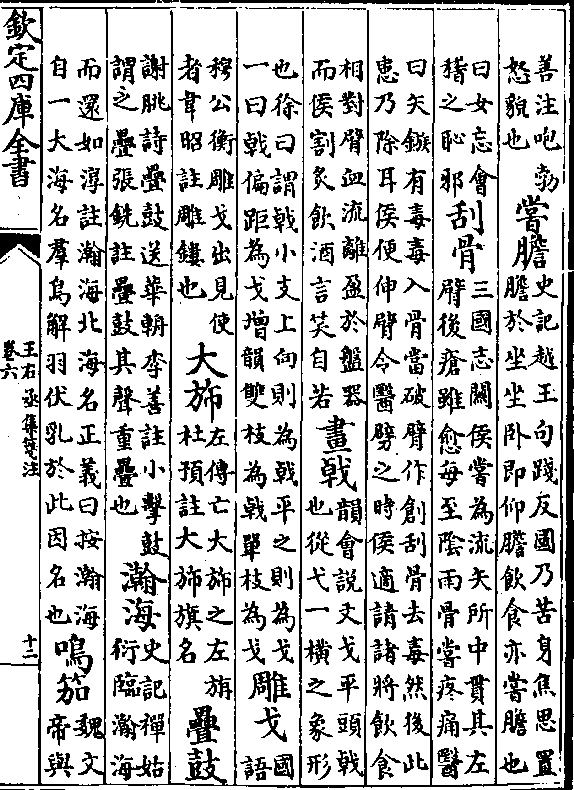 善注咆勃怒貌也嘗膽史記越王句踐反國乃苦身焦思置膽於坐坐卧即仰膽飲食亦嘗膽也
曰女忘會稽之恥邪刮骨三國志關侯嘗為流矢所中貫其左臂後瘡雖愈每至陰雨骨嘗疼痛醫
曰矢鏃有毒毒入骨當破臂作創刮骨去毒然後此患乃除耳侯便伸臂令醫劈之時侯適請諸將飲食
相對臂血流離盈於盤器而侯割炙飲酒言笑自若畫戟韻會説文戈平頭戟也從弋一橫之象形
也徐曰謂戟小支上向則為戟平之則為戈一曰戟偏距為戈增韻雙枝為戟單枝為戈雕戈國語
穆公衡雕戈出見使者韋昭註雕鏤也大斾左傳亡大斾之左旃杜預註大斾旗名疊鼓
謝朓詩疊鼓送華輈李善註小擊鼓謂之疊張銑註疊鼓其聲重疊也瀚海史記禪姑衍臨瀚海
而還如淳註瀚海北海名正義曰按瀚海自一大海名羣鳥解羽伏乳於此因名也鳴笳魏文帝與
欽定四庫全書
王右丞集箋注
卷六
十二